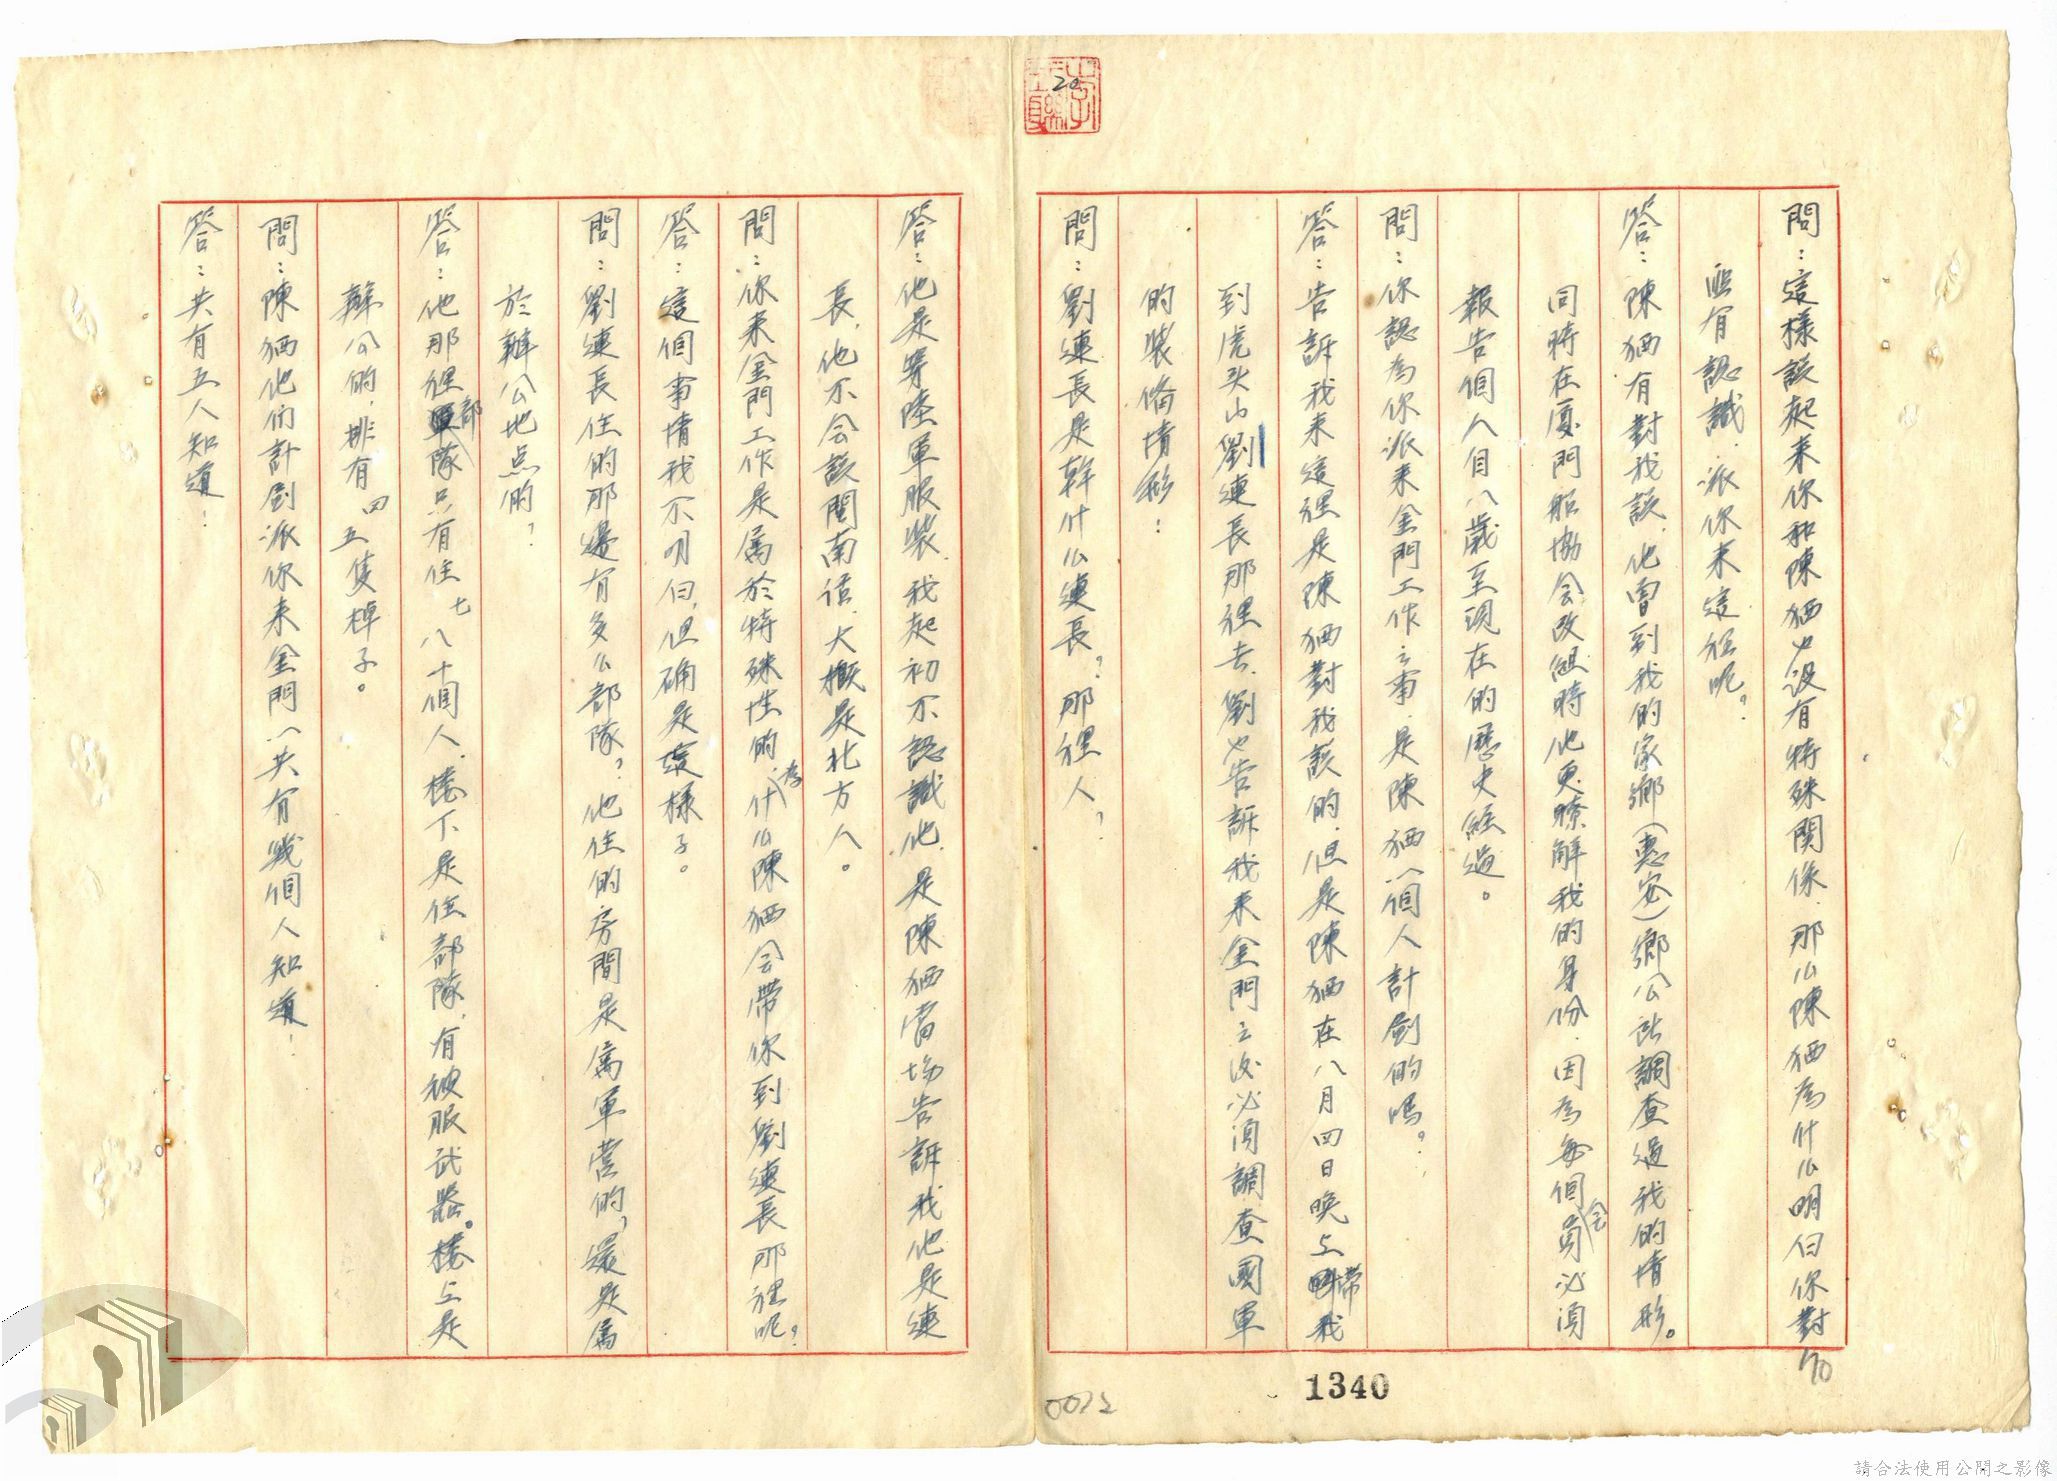 問：這樣談起来你和陳猫也没有特殊関係．那么陳猫為什么明白你對
匪有認識．派你来這裡呢？
答：陳猫有對我談．他曾到我的家鄉(惠安)鄉公所調查過我的情形。
同時在厦門船協会改組時他更瞭解我的身份．因為每個会員必須
報告個人自八歲至現在的歷史経過。
問：你認為你派来金門工作之事．是陳猫一個人計劃的嗎？
答：告訴我来這裡是陳猫對我談的．但是陳猫在八月四日晚上帶我
到虎头山劉連長那裡去．劉也告訴我来金門之後必須調查國軍
的裝俻情形！
問：劉連長是幹什么連長？那裡人？
答：他是穿陸軍服裝．我起初不認識他．是陳猫當場告訴我他是連
長，他不会談閩南话．大概是北方人。
問：你来金門工作是属於特殊性的．為什么陳猫会帶你到劉連長那裡呢？
答：這個事情我不明白，但确是這樣子。
問：劉連長住的那邊有多么部隊？他住的房間是属軍营的，還是属
於辦公地点的？
答：他那裡部隊只有住七八十個人．楼下是住部隊，有被服武器。楼上是
辦公的，排有四五隻棹子。
問：陳猫他们計劃派你来金門一共有幾個人知道！
答：共有五人知道！
20
70
1340
請合法使用公開之影像